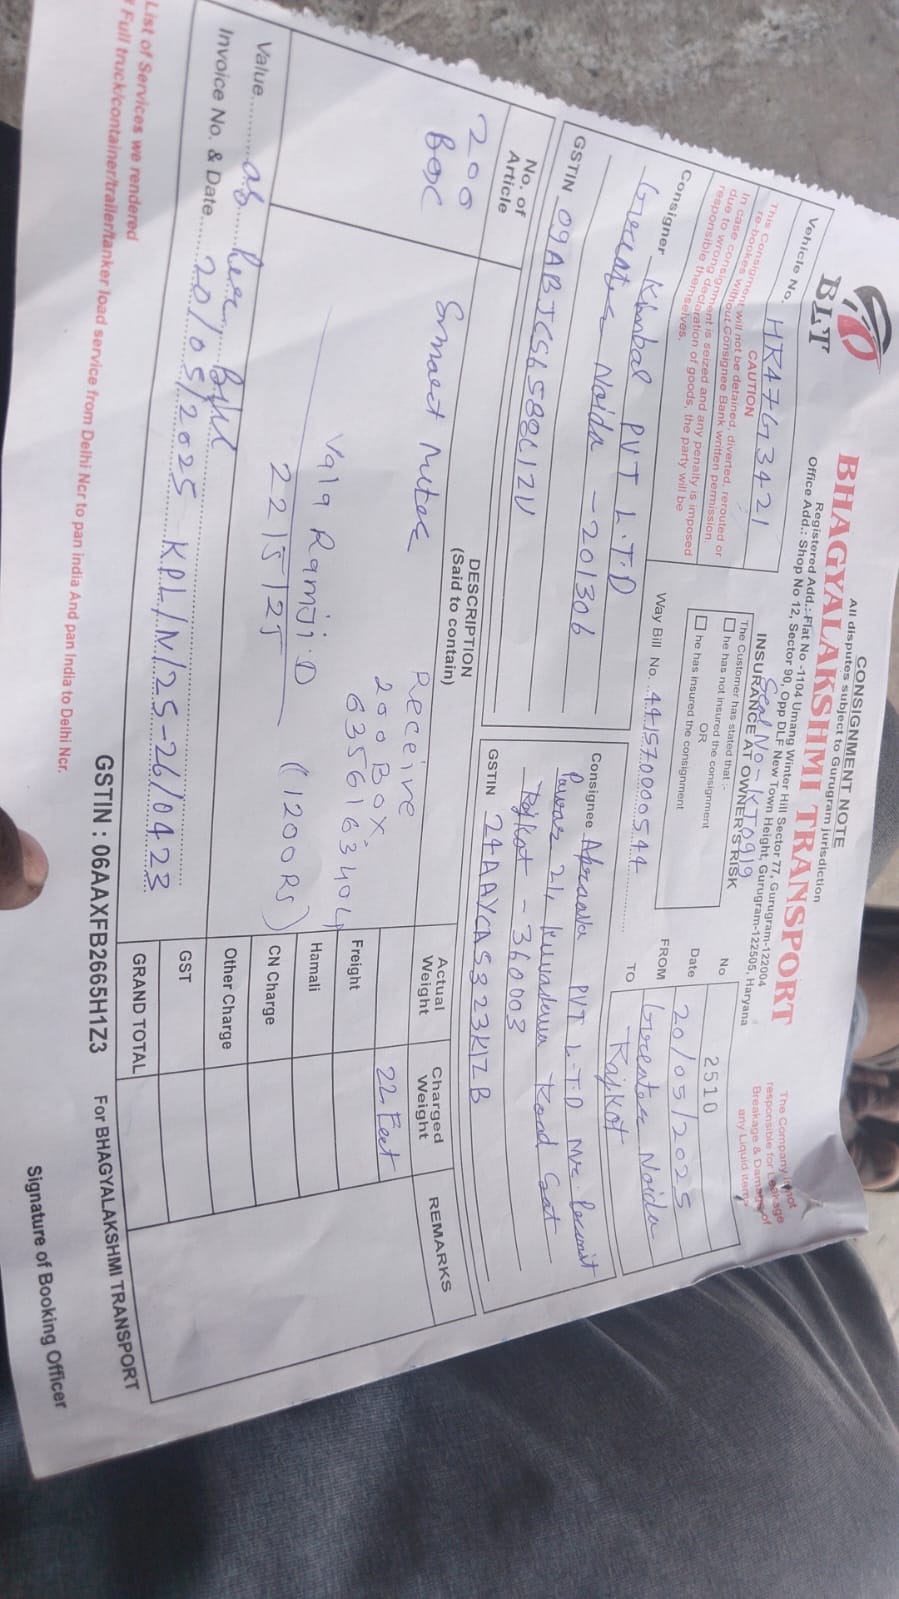 CONSIGNMENT NOTE
All disputes subject to Gurugram jurisdiction
BLT
BHAGYALAKSHMI TRANSPORT
Registered Add.: Flat No -1104 Umang Winter Hill Sector 77, Gurugram-122004
Office Add.: Shop No 12, Sector 90, Opp DLF New Town Height, Gurugram-122505, Haryana
The Company is not
responsible for Leakage
Breakage & Damage of
any Liquid item
Vehicle No. HR47G3421
Seal No - KT0919
CAUTION
This Consignment will not be detained, diverted, rerouted or
re-bookes without Consignee Bank written permission.
In case consignment is seized and any penalty is imposed
due to wrong declaration of goods, the party will be
responsible themselves.
INSURANCE AT OWNER'S RISK
The Customer has stated that:-
he has not insured the consignment
OR
he has insured the consignment
No 2510
Date 20/05/2025
FROM Greater Noida
TO Rajkot
Way Bill No. 441570000544
Consigner Kimbal PVT L.T.D
Greater Noida - 201306
GSTIN
Consignee PVT L.T.D Nr.
24 Kuvadava Road
Rajkot - 360003
GSTIN 24AAYCAS323K1ZB
No. of
Article
DESCRIPTION
(Said to contain)
Actual
Weight
Charged
Weight
REMARKS
200
Box
Smart Meter
Receive
200 Box
6356163404
Vala Ramji.D
22/5/25
(1200 RS)
22 Feet
Freight
Hamali
CN Charge
Other Charge
GST
GRAND TOTAL
Value as per Bill
Invoice No. & Date 20/05/2025 KPL/N/25-26/0423
GSTIN : 06AAXFB2665H1Z3
For BHAGYALAKSHMI TRANSPORT
List of Services we rendered
Full truck/container/trailer/tanker load service from Delhi Ncr to pan india And pan India to Delhi Ncr.
Signature of Booking Officer